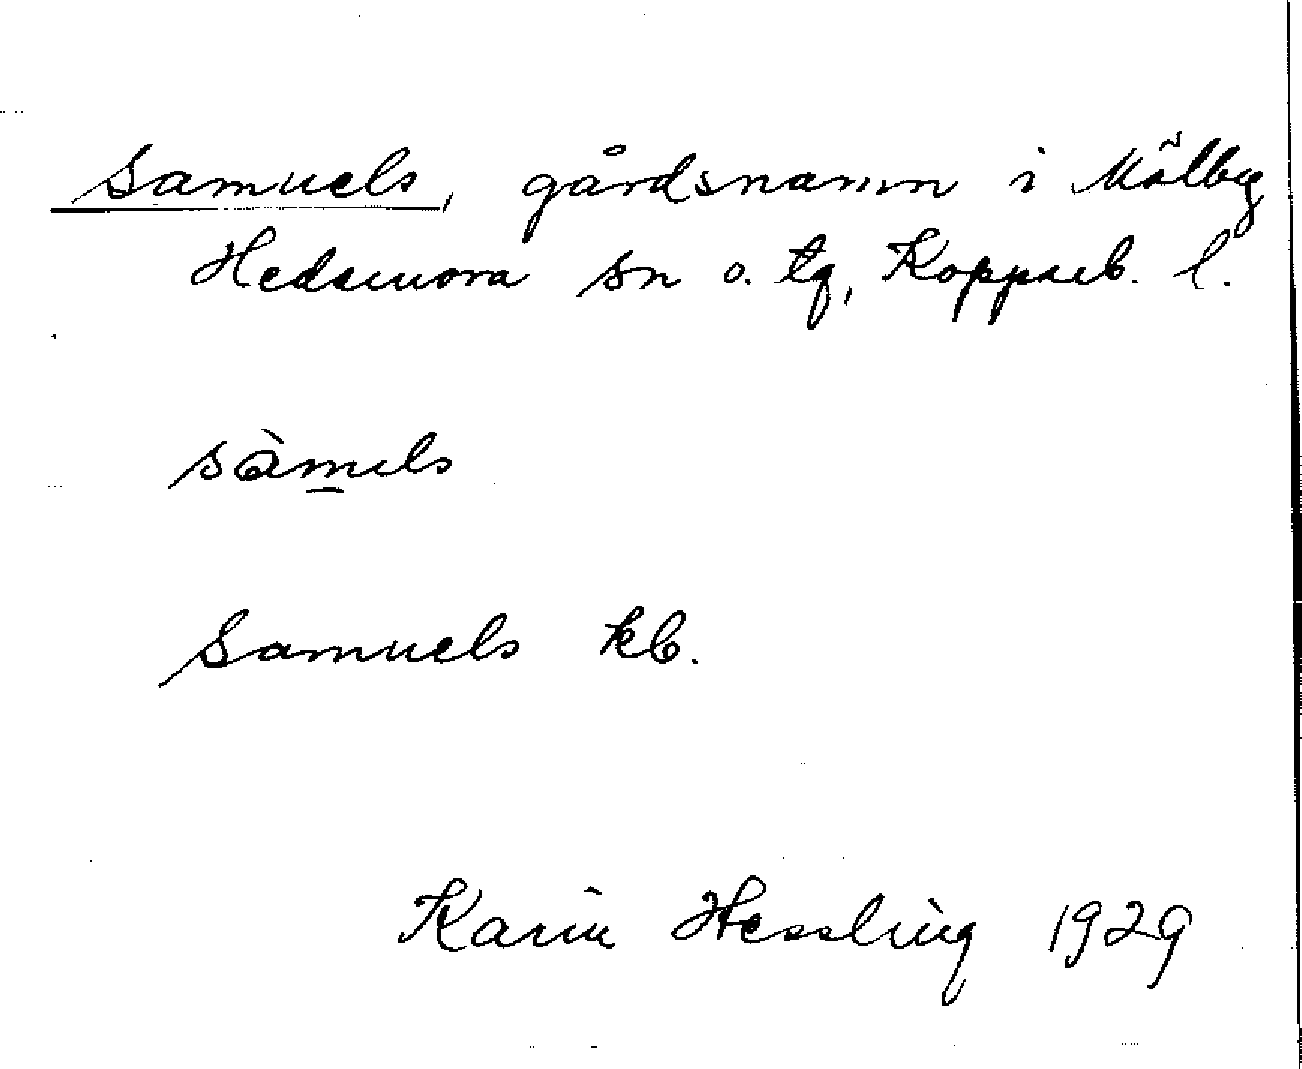 Samuels, gårdsnamn i Mälby
Hedemora sn o. tg, Kopparb. l.
sàmels
Samuels kb.
Karin Hessling 1929